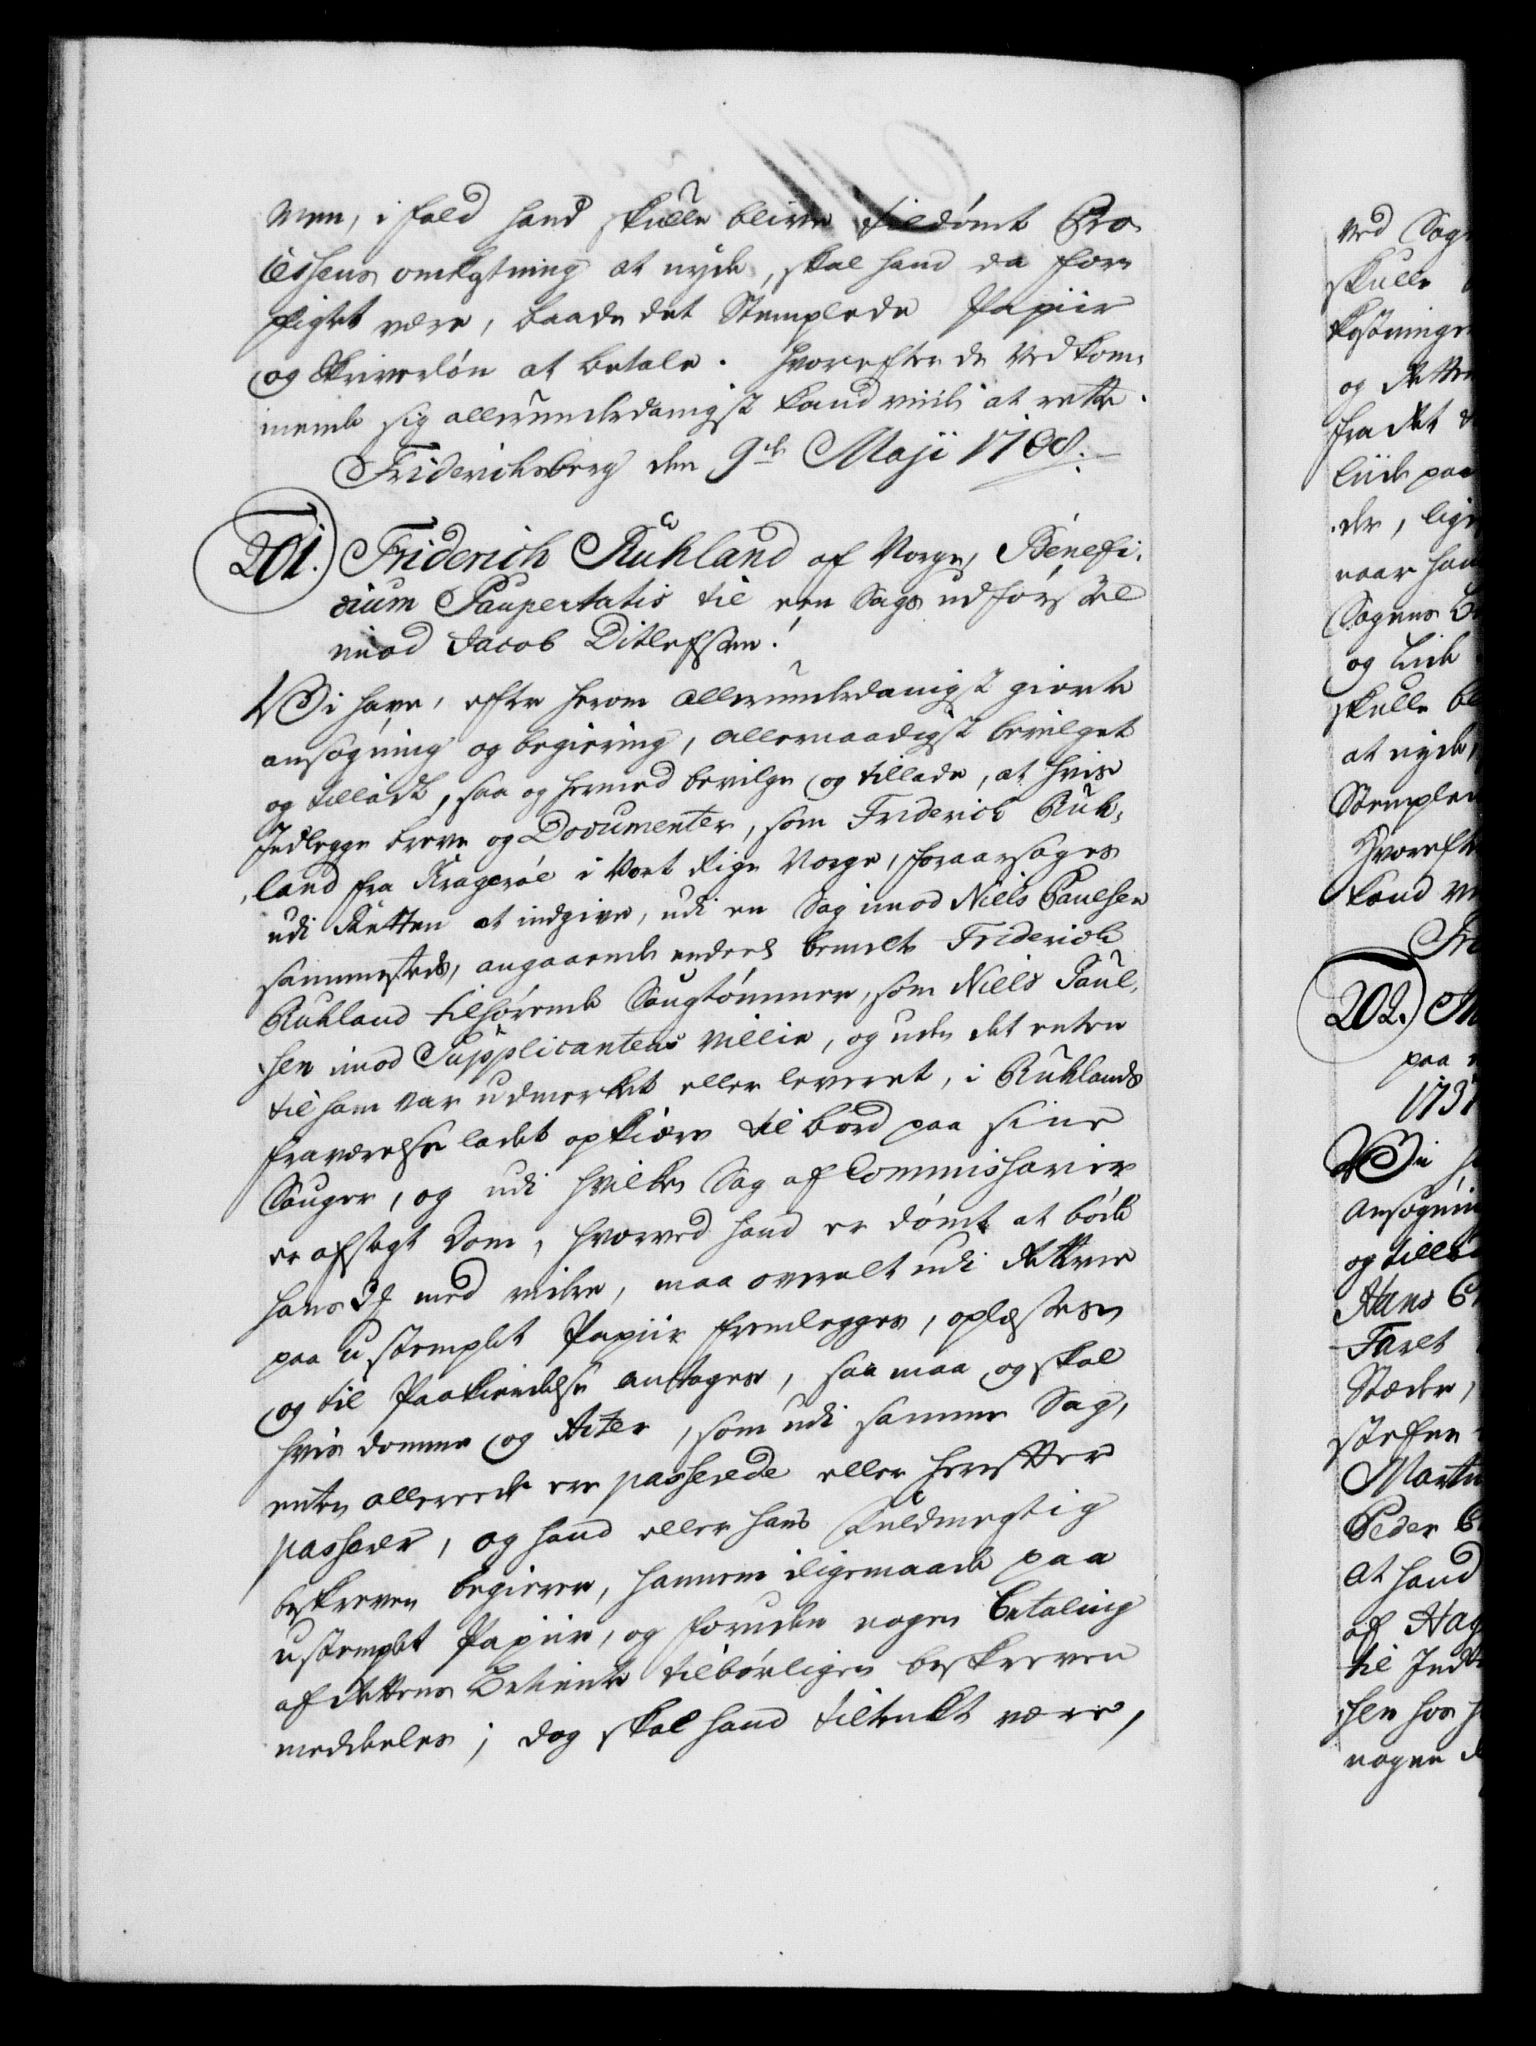 Men, i fald hand skulle blive tildömt Pro-
cessens omkostning at nyde, skal hand da for-
pligtet være, baade det Stemplede Papiir
og Skriverlön at betale. Hvorefter de Vedkom-
mende sig allerunderdanigst kand vide at rette.
Friderichsberg den 9de Maji 1738.
201. Friderich Ruhland af Norge, Benefi-
cium Paupertatis til een Sags udförssel
imod Jacob Ditlefssen.
Vi have, efter herom allerunderdanigst giorte
ansögning og begiering, allernaadigst bevilget
og tilladt, saa og hermed bevilge og tillade, at hvis
Indlegge breve og Documenter, som Friderich Ruh-
land fra Krageröe i Vort Rige Norge, foraarsages
udi Retten at indgive, udi en Sag imod Niels Paulsen
sammesteds, angaaende endeel bemelte Friderich
Ruhland tilhörende Saugtömmer, som Niels Paul-
sen imod Supplicantens villie, og uden det enten
til ham var udmerket eller leveret, i Ruhlands
fraværelse ladet opskiære til bord paa sine
Sauger, og udi hvilken Sag af Commissarier
er afsagt Dom, hvorved hand er dömt at böde
hans 3 med videre, maa overalt udi Retterne
paa ustemplet Papiir fremlegges, oplæses
og til Paakiendelse antages, saa maa og skal
hvis domme og Acter, som udi samme Sag,
enten allereede ere passerede eller herefter
passerer, og hand eller hans Fuldmegtig
beskreven begierer, hannem iligemaade paa
ustemplet Papiir, og foruden nogen Betaling
af Rettens Betiente tilbörligen beskreven
meddeeles; dog skal hand tiltenkt være,
ved Sag
skulle
kostninge
og Rette
fra det
liide paa
naar han
Sagens
og liide
skulle bl
at nyde,
Stemplede
Hvorefte
kand v
202.
paa
173
Vi h
Ansögnin
og tillad
Hans
Faret
Stæder,
Marti
Peder
at hand
af Hag
til Ind
sen hos
nogen